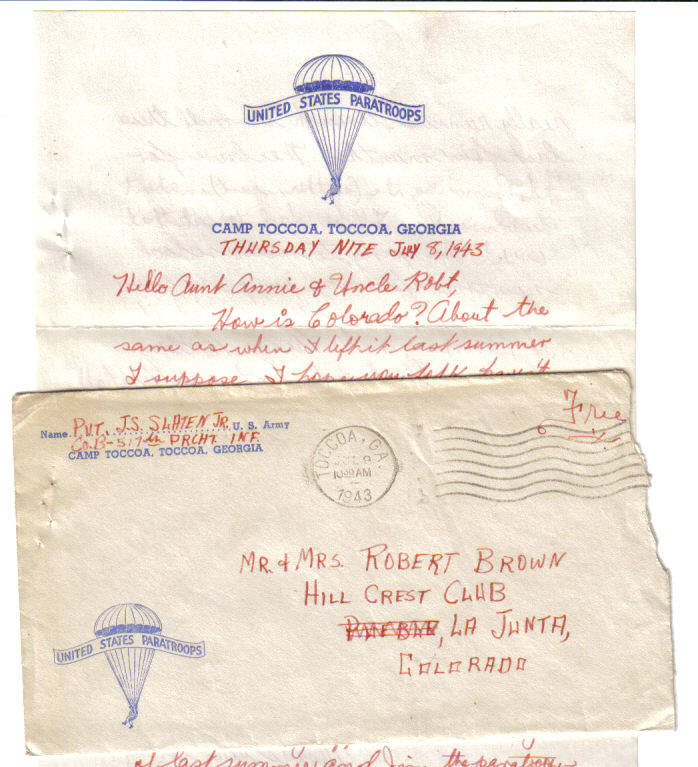 UNITED STATES PARATROOPS
CAMP TOCCOA, TOCCOA, GEORGIA
THURSDAY NITE JULY 8, 1943
Hello Aunt Annie & Uncle Robt,
How is Colorado? About the
same as when I left it last summer
I suppose. I hope you folk haven't
Name PVT. J.S. SLATEN JR. U. S. Army
Co. B - 517th PRCHT. INF.
CAMP TOCCOA, TOCCOA, GEORGIA
TOCCOA, GA.
JUL 9
10 AM
1943
Free
MR. & MRS. ROBERT BROWN
HILL CREST CLUB
LA JUNTA,
COLORADO
UNITED STATES PARATROOPS
of last summer and I'm the